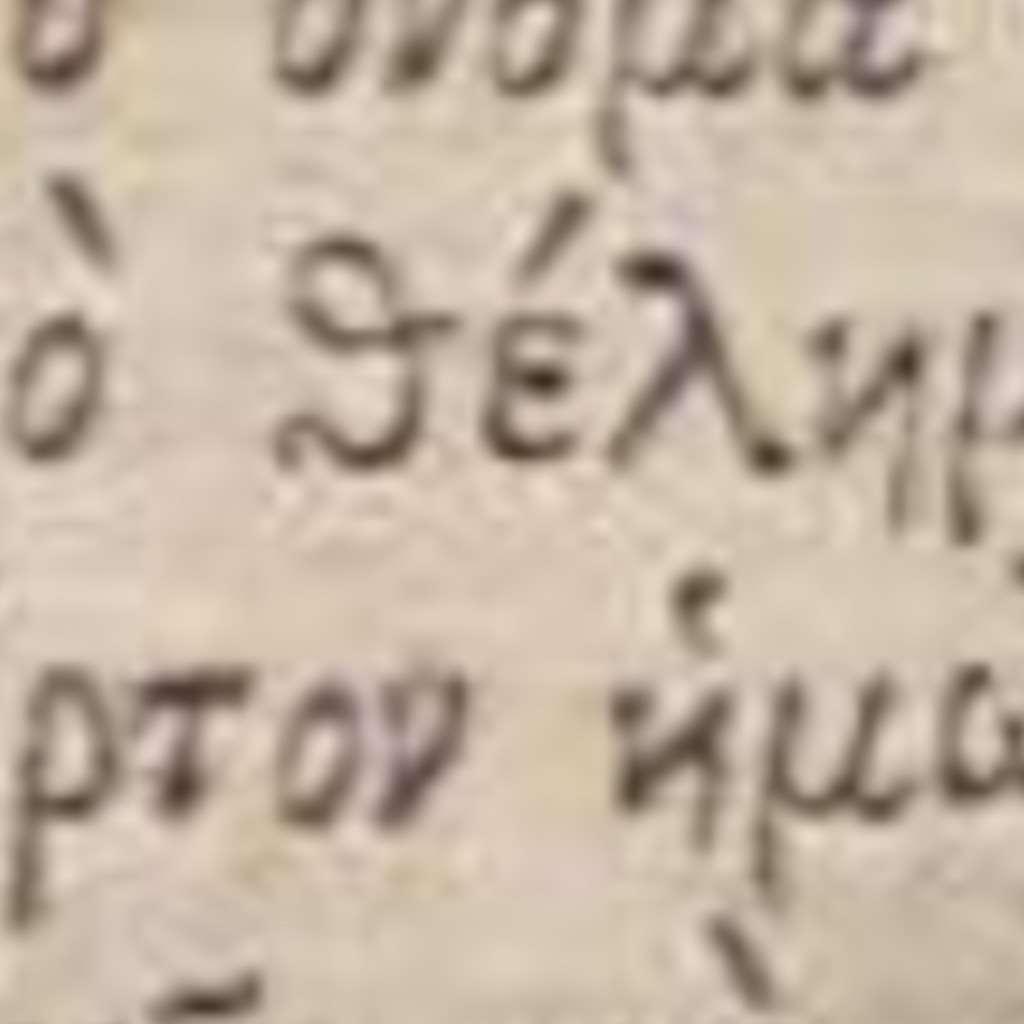 ὸ ὄνομα
ὸ θέλημ
ρτον ἡμῶ